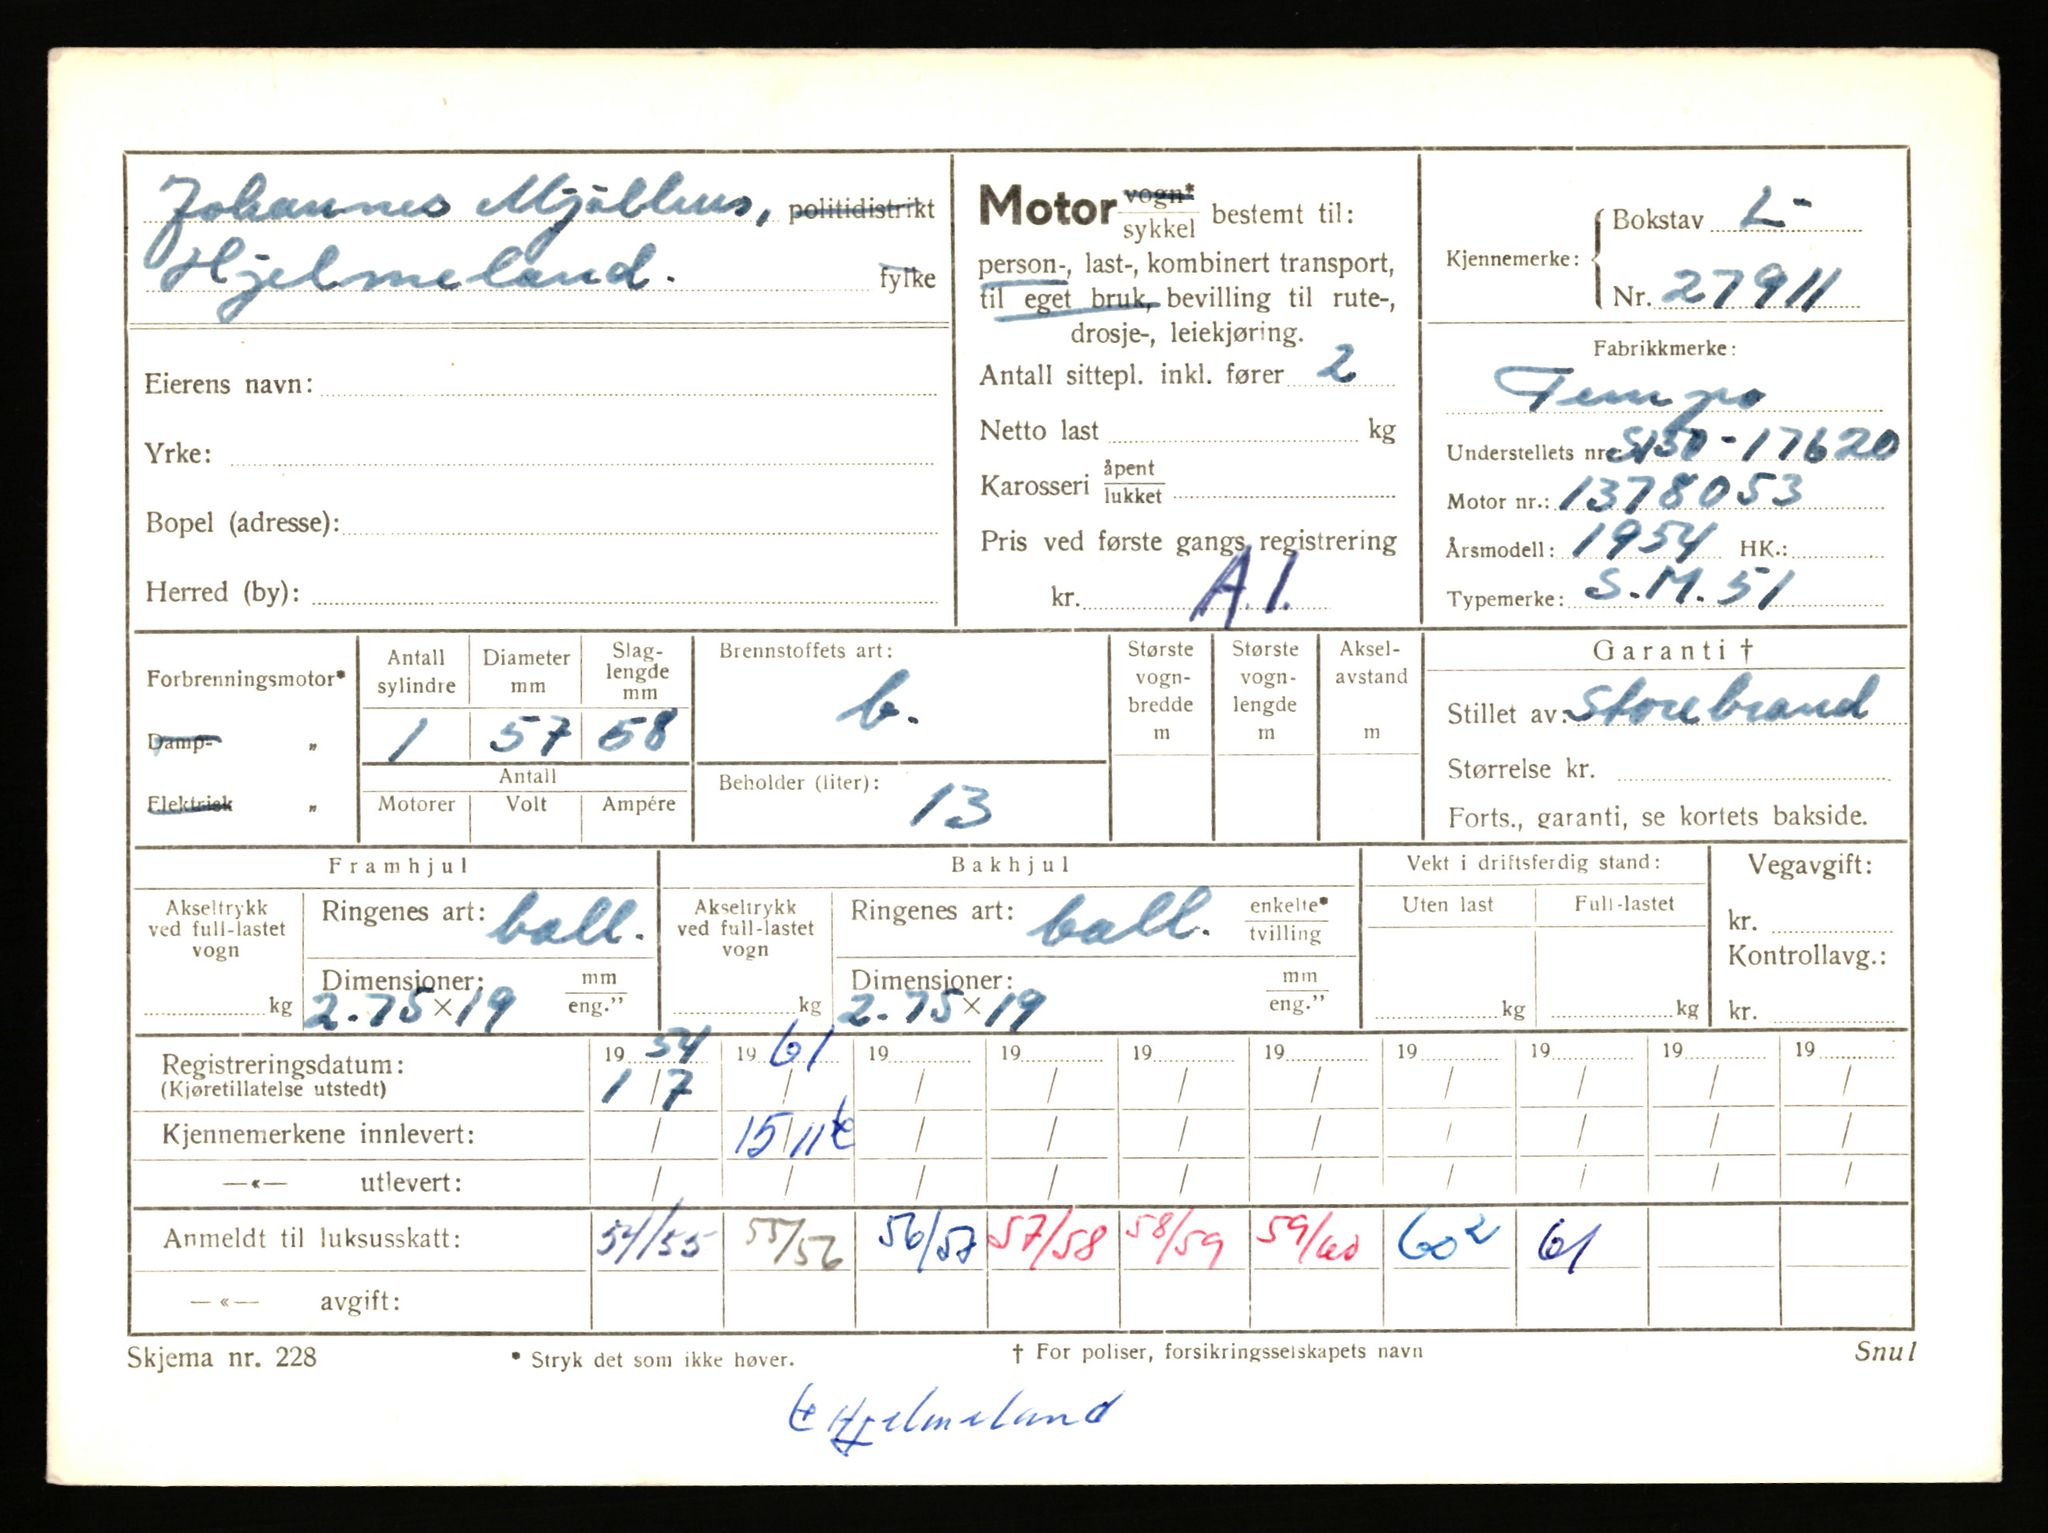 Johannes Mjølhus, politidistrikt
Hjelmeland. fylke
Eierens navn:
Yrke:
Bopel (adresse):
Herred (by):
Motor vogn* / sykkel bestemt til:
person-, last-, kombinert transport,
til eget bruk, bevilling til rute-,
drosje-, leiekjøring.
Antall sittepl. inkl. fører 2
Netto last kg
Karosseri åpent / lukket
Pris ved første gangs registrering
kr. A.1.
Kjennemerke: Bokstav L-
Nr. 27911
Fabrikkmerke:
Tempo
Understellets nr.: S150-17620
Motor nr.: 1378053
Årsmodell: 1954 HK.:
Typemerke: S.M.51
Forbrenningsmotor*
Damp- "
Elektrisk "
Antall sylindre
Diameter mm
Slag-lengde mm
1 57 58
Antall
Motorer Volt Ampére
Brennstoffets art:
b.
Beholder (liter):
13
Største vogn-bredde m
Største vogn-lengde m
Aksel-avstand m
Garanti †
Stillet av: Storebrand
Størrelse kr.
Forts., garanti, se kortets bakside.
Framhjul
Akseltrykk ved full-lastet vogn
kg
Ringenes art: ball.
Dimensjoner: mm / eng."
2.75 × 19
Bakhjul
Akseltrykk ved full-lastet vogn
kg
Ringenes art: ball. enkelte* / tvilling
Dimensjoner: mm / eng."
2.75 × 19
Vekt i driftsferdig stand:
Uten last Full-lastet
kg kg
Vegavgift:
kr.
Kontrollavg.:
kr.
Registreringsdatum: 19 54 19 61 19 19 19 19 19 19 19 19
(Kjøretillatelse utstedt) 1/7 / / / / / / / / /
Kjennemerkene innlevert: / 15/11 / / / / / / / /
—«— utlevert: / / / / / / / / / /
Anmeldt til luksusskatt: 54/55 55/56 56/57 57/58 58/59 59/60 60² 61
—«— avgift:
Skjema nr. 228 * Stryk det som ikke høver. † For poliser, forsikringsselskapets navn Snul
Hjelmeland